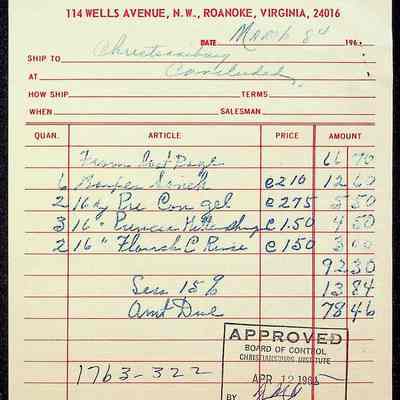 114 WELLS AVENUE, N. W., ROANOKE, VIRGINIA, 24016
DATE March 8th 196
SHIP TO Christiansburg
AT Concluded
HOW SHIP TERMS
WHEN SALESMAN
QUAN. ARTICLE PRICE AMOUNT
From last Page 66 70
6 @ 2 10 12 60
2 16 oz Pre Con gel @ 2 75 5 50
3 16 " @ 1.50 4 50
2 16 " C Rinse @ 1 50 3 00
92 30
Less 15 % 13 84
Amt Due 78 46
1763-322
APPROVED
BOARD OF CONTROL
CHRISTIANSBURG INSTITUTE
APR 12 196
BY